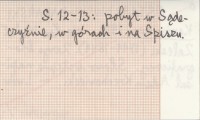 S. 12-13: pobyt w Sąde-
czyźnie, w górach i na Spiszu.